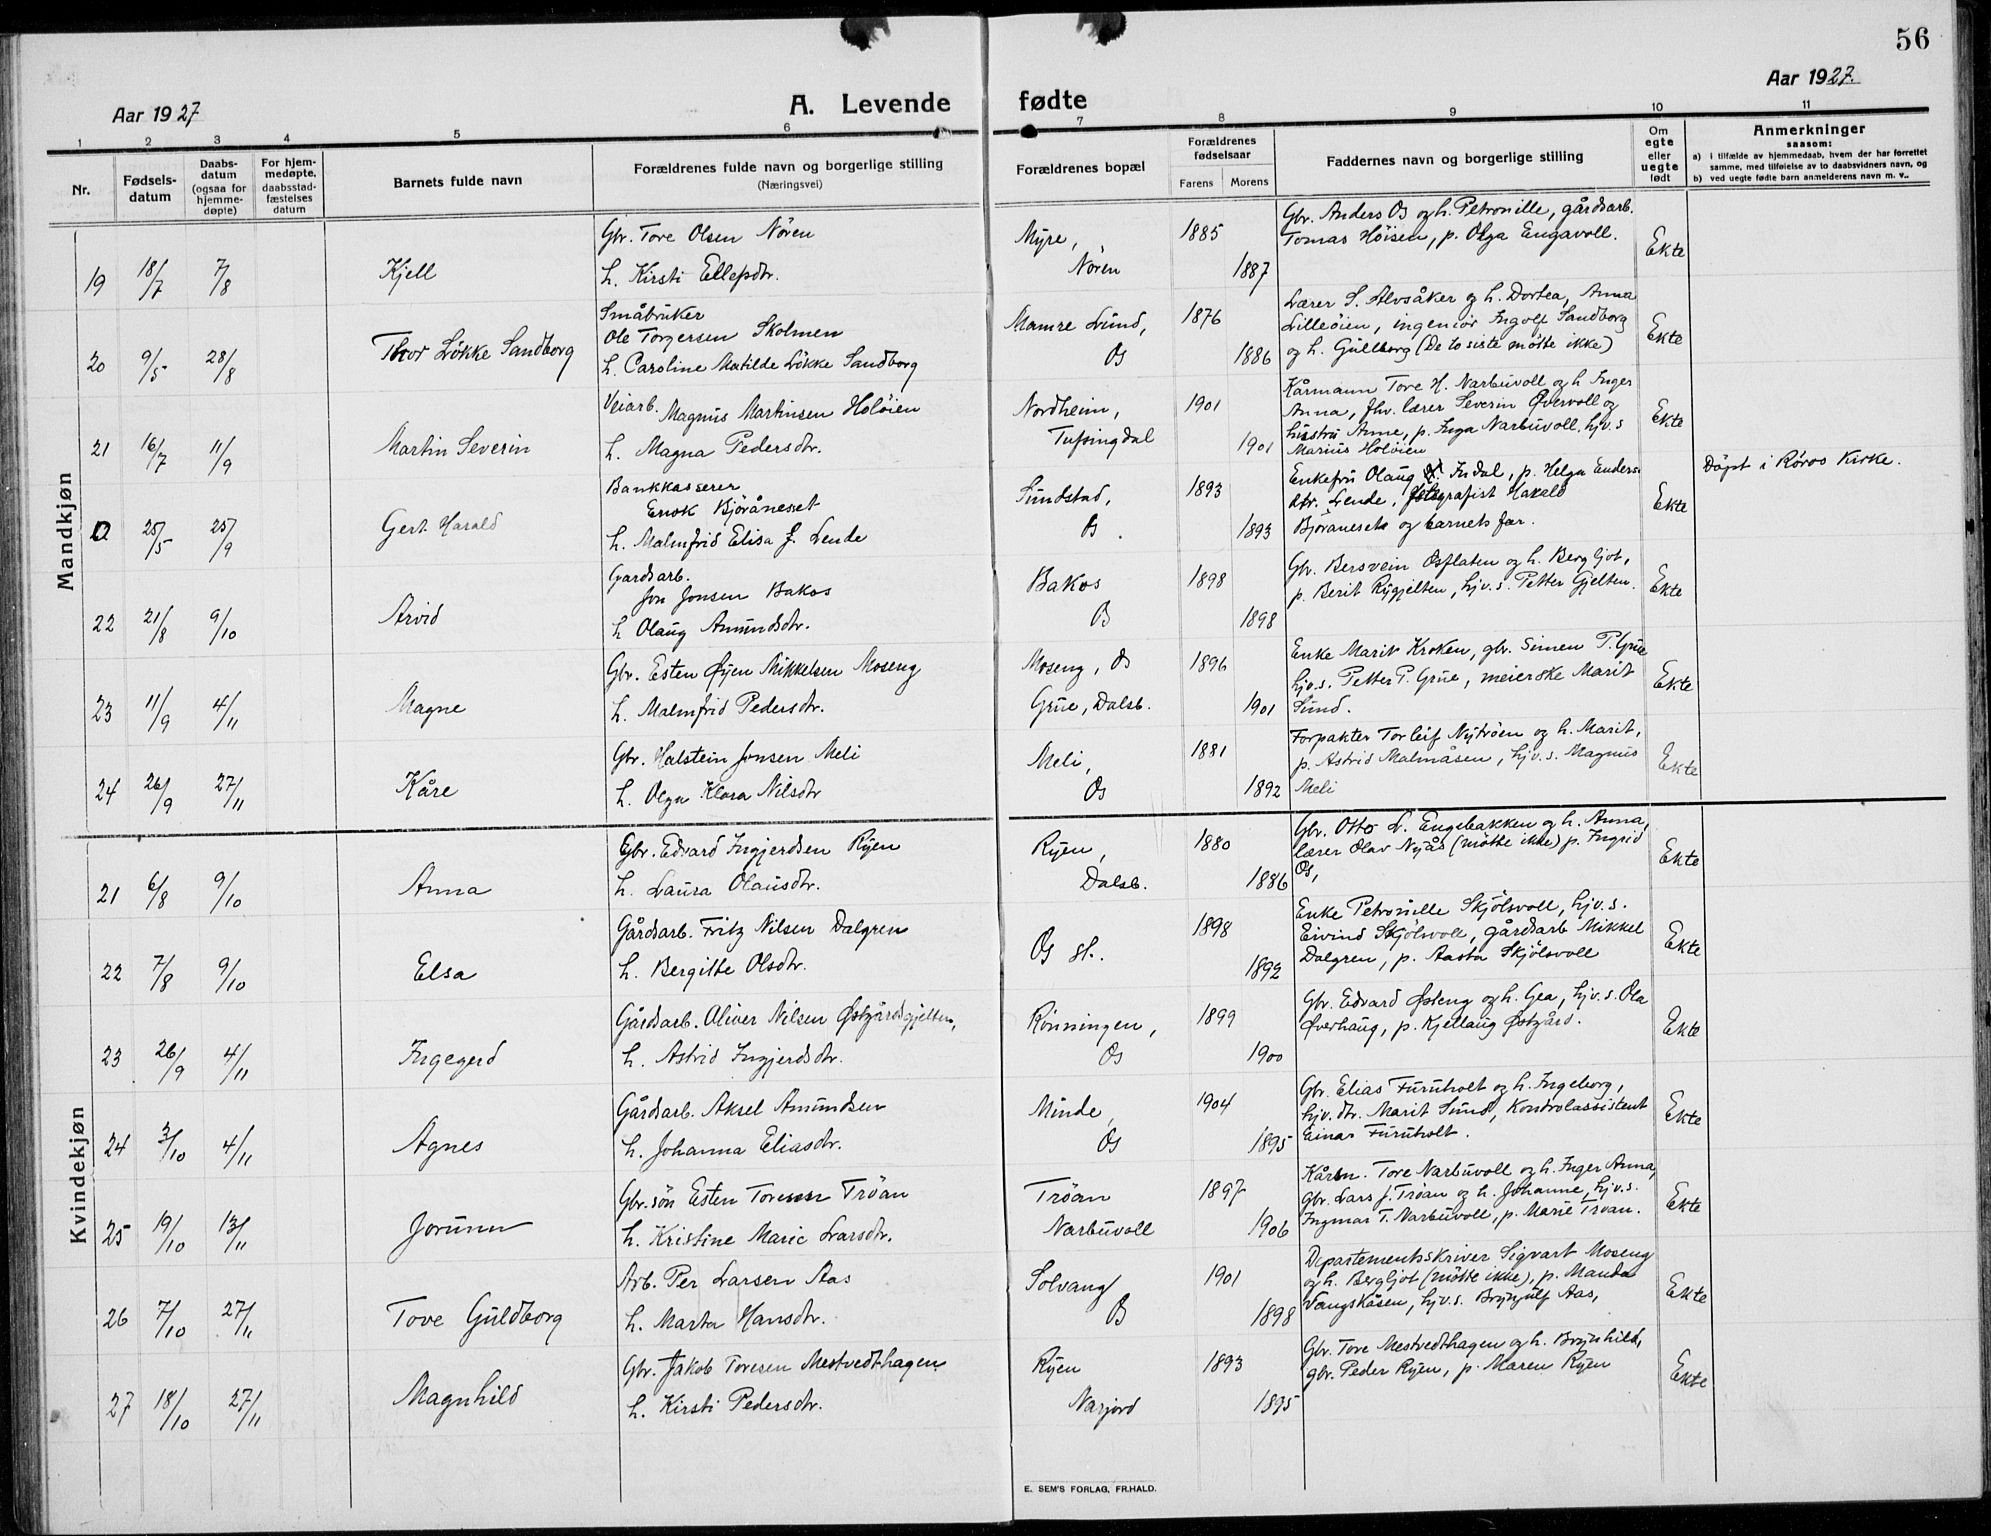 56
Aar 1927
A. Levende fødte
Aar 1927.
1 2 3 4 5 6 7 8 9 10 11
Nr.
Fødsels-
datum
Daabs-
datum
(ogsaa for
hjemme-
døpte)
For hjem-
medøpte,
daabsstad-
fæstelses
datum
Barnets fulde navn
Forældrenes fulde navn og borgerlige stilling
(Næringsvei)
Forældrenes bopæl
Forældrenes
fødselsaar
Farens Morens
Faddernes navn og borgerlige stilling
Om
egte
eller
uegte
født
Anmerkninger
saasom:
a) i tilfælde av hjemmedaab, hvem der har forrettet
samme, med tilføielse av to daabsvidners navn, og
b) ved uegte fødte barn anmelderens navn m. v..
Mandkjøn
19 18/7 7/8 Kjell
Gbr. Tore Olsen Nören
h. Kirsti Ellefsdtr.
Myre,
Nören
1885 1887
Gbr. Anders Os og h. Petronille, gårdsarb.
Tomas Höisen, p. Olga Engavoll.
Ekte
20 9/5 28/8 Thor Lökke Sandborg
Småbruker
Ole Torgersen Skolmen
h. Caroline Matilde Lökke Sandborg
Mamre Lund,
Os
1876 1886
Lærer S. Alvsåker og h. Dortea, Anna
Lilleöien, ingeniör Ingolf Sandborg
og h. Gullborg (De to siste mötte ikke)
Ekte
21 16/7 11/9 Martin Severin
Veiarb. Magnus Martinsen Holöien
h. Magna Pedersdtr.
Nordheim,
Tufsingdal
1901 1901
Kårmann Tore H. Narbuvoll og h Inger
Anna, fhv. lærer Severin Övervoll og
hustru Anne, p. Inga Narbuvoll, hjv.s
Marius Holöien
Ekte
0 25/5 25/9 Gert Harald
Bankkasserer
Enok Björåneset
h. Malmfrid Elisa J. Lende
Sundstad,
Os.
1893 1893
Enkefru Olaug Indal, p. Helga Enders
dtr. Lende, fotografist Harald
Björaneset og barnets far.
Ekte
Döpt i Röros Kirke.
22 21/8 9/10 Arvid
Gardsarb.
Jon Jonsen Bakos
h Olaug Amundsdtr.
Bakos
Os
1898 1898
Gbr. Bersvein Osflaten og h. Bergljot,
p. Berit Rygjelten, hjv.s. Petter Gjelten.
Ekte
23 11/9 4/11 Magne
Gbr. Esten Øyen Mikkelsen Moseng
h. Malmfrid Pedersdtr.
Moseng, Os
Grue, Dalsb.
1896 1901
Enke Marit Kroken, gbr. Simen P. Grue
hjv.s. Petter P. Grue, meierske Marit
Sund.
Ekte
24 26/9 27/11 Kåre
Gbr. Halstein Jonsen Meli
h. Olga Klara Nilsdtr
Meli,
Os
1881 1892
Forpakter Torleif Nytröen og h. Marit,
p. Astrid Malmåsen, hjv.s. Magnus
Meli
Ekte
Kvindekjøn
21 6/8 9/10 Anna
Gbr. Edvard Ingjerdsen Ryen
h. Laura Olausdtr.
Ryen,
Dalsb.
1880 1886
Gbr. Otto L. Engebakken og h. Anna,
lærer Olav Nyås (mötte ikke) p. Ingrid
Os,
Ekte
22 7/8 9/10 Elsa
Gårdsarb. Fritz Nilsen Dalgren
h. Bergitte Olsdtr.
Os st.
1898 1892
Enke Petronille Skjölsvoll, hjv.s.
Eivind Skjölsvoll, gårdsarb Mikkel
Dalgren, p. Aasta Skjölsvoll
Ekte
23 26/9 4/11 Ingegerd
Gårdsarb. Oliver Nilsen Østgårdsgjelten,
h. Astrid Ingjerdsdtr.
Rönningen,
Os
1899 1900
Gbr. Edvard Østeng og h. Gea, hjv.s. Ola
Øverhaug, p. Kjellaug Østgård.
Ekte
24 3/10 4/11 Agnes
Gårdsarb. Aksel Amundsen
h. Johanna Eliasdtr.
Minde,
Os
1904 1895
Gbr. Elias Furuholt og h. Ingeborg,
hjv.dtr. Marit Sund, Kontrolassistent
Einar Furuholt.
Ekte
25 19/10 13/11 Jorunn
Gbr.sön Esten Toresen Tröan
h. Kristine Marie Larsdtr.
Tröan
Narbuvoll
1897 1906
Kårm. Tore Narbuvoll og h. Inger Anna,
gbr. Lars J. Tröan og h. Johanne, hjv.s.
Ingmar T. Narbuvoll, p. Marie Tröan.
Ekte
26 7/10 27/11 Tove Guldborg
Arb. Per Larsen Aas
h. Marta Hansdtr.
Solvang
Os
1901 1898
Departementsskriver Sigvart Moseng
og h. Bergljot (mötte ikke), p. Manda
Vangskåsen, hjv.s. Brynjulf Aas,
Ekte
27 18/10 27/11 Magnhild
Gbr. Jakob Toresen Mestvedthagen
h. Kirsti Pedersdtr.
Ryen
Narjord
1893 1895
Gbr. Tore Mestvedthagen og h. Brynhild,
gbr. Peder Ryen, p. Maren Ryen
Ekte
E. SEM'S FORLAG, FR.HALD.